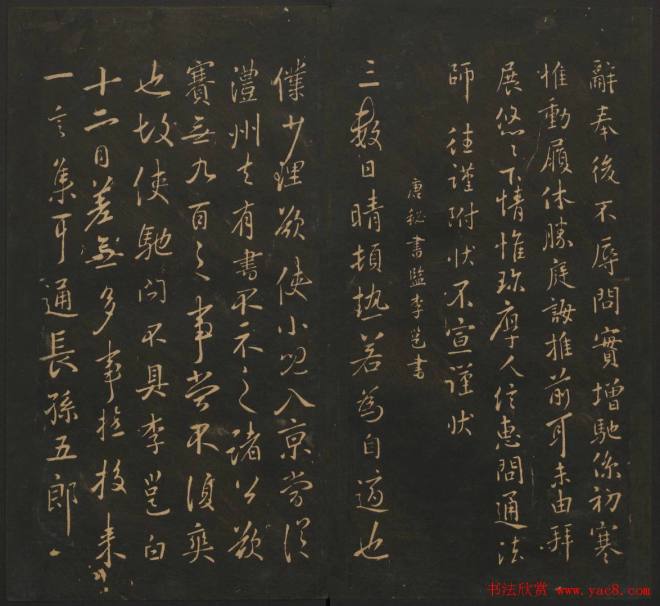 辭奉後不辱問實增馳係初寒
惟動履休勝庭誨推前耳未由拜
展悠々下情惟珍廖人信惠問通法
師往謹附状不宣謹状
唐秘書監李邕書
三數日晴頓熱若為自適也
僕少理欲使小兒入京當從
澧州去有書不示之諸公欲
賽無九百之事當不須奕
也故使馳問不具李邕白
十二日差無多事能投来
一言集耳通長孫五郎
书法欣赏 www.yac8.com